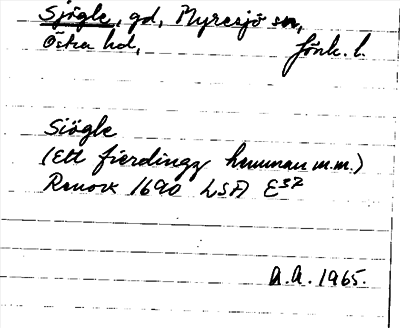 Sjögle, gd, Myresjö sn,
Östra hd, Jönk. l.
Siögle
(Ett fierdingz hemman m.m.)
Renov. 1690 LSA E37
A.A. 1965.